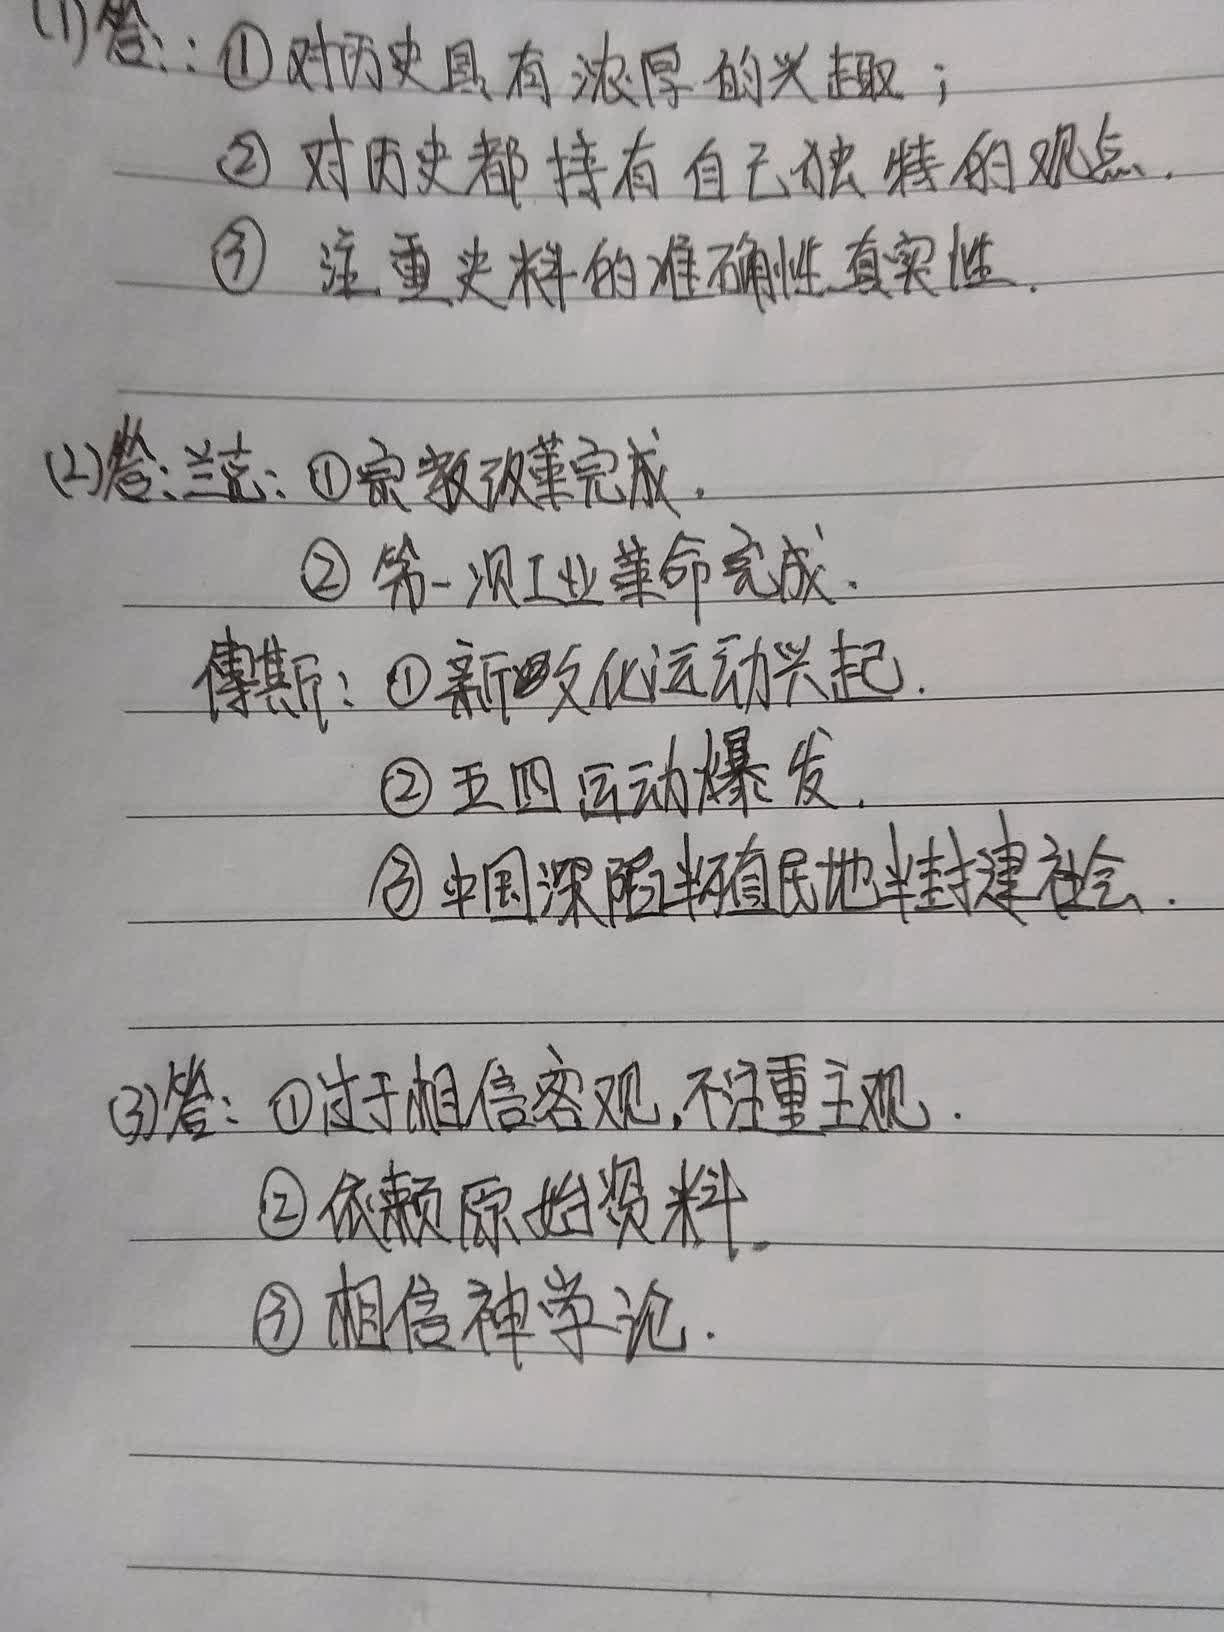 (1)答：：①对历史具有浓厚的兴趣；
②对历史都持有自己独特的观点.
③注重史料的准确性真实性.
(2)答：兰克：①宗教改革完成.
②第一次工业革命完成.
傅斯：①新文化运动兴起.
②五四运动爆发.
③中国深陷半殖民地半封建社会.
(3)答：①过于相信客观,不注重主观.
②依赖原始资料.
③相信神学论.